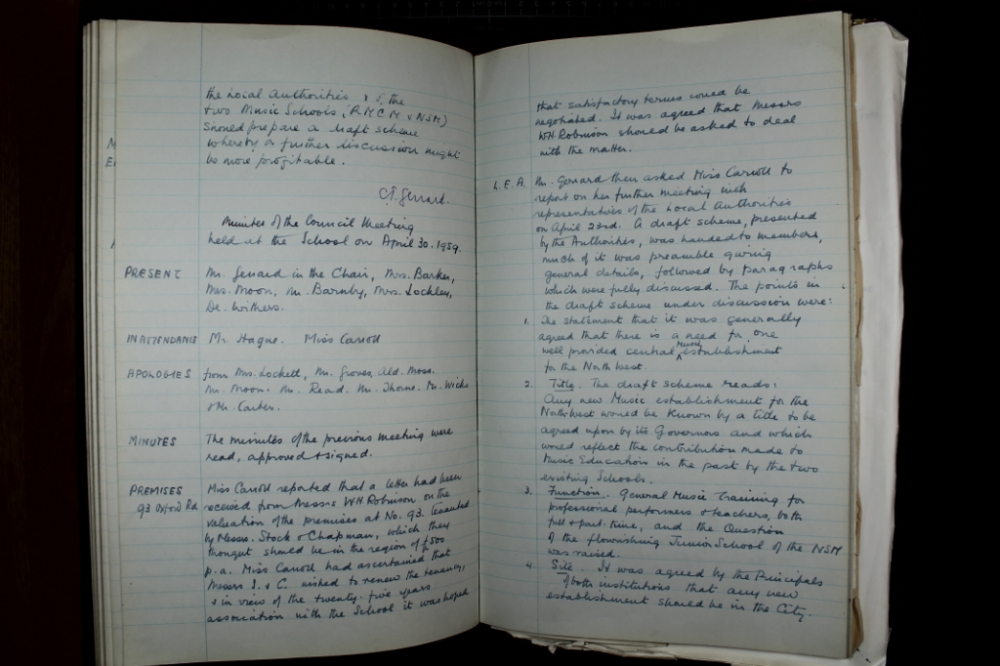 the Local Authorities & of the
two Music Schools, (R.M.C.M & NSM)
should prepare a draft scheme
whereby a further discussion might
be more profitable.
Minutes of the Council Meeting
held at the School on April 30. 1959.
PRESENT Mr. Gerrard in the Chair, Mrs. Barker,
Mrs. Moon, Mr. Barnby, Mrs. Lockley,
Dr. Withers.
IN ATTENDANCE Mr. Hague. Miss Carroll
APOLOGIES from Mrs. Lockett, Mr. Groves, Ald. Moss.
Mr. Moon. Mr. Read. Mr. Thorne. Mr. Wicks
& Mr. Carter.
MINUTES The minutes of the previous meeting were
read, approved & signed.
PREMISES Miss Carroll reported that a letter had been
93 Oxford Rd received from Messrs WH Robinson on the
valuation of the premises at No. 93. tenanted
by Messrs. Stock & Chapman, which they
thought should be in the region of £500
p.a. Miss Carroll had ascertained that
Messrs S. & C. wished to renew the tenancy,
& in view of the twenty-five years
association with the School it was hoped
that satisfactory terms would be
negotiated. It was agreed that Messrs
WH Robinson should be asked to deal
with the matter.
L.E.A. Mr. Gerrard then asked Miss Carroll to
report on her further meeting with
representatives of the Local Authorities
on April 23rd. A draft scheme, presented
by the Authorities, was handed to members,
much of it was preamble giving
general details, followed by paragraphs
which were fully discussed. The points in
the draft scheme under discussion were:
1. The statement that it was generally
agreed that there is a need for one
well provided central Music establishment
for the North West.
2. Title. The draft scheme reads:
Any new Music establishment for the
Northwest would be known by a title to be
agreed upon by its Governors and which
would reflect the contribution made to
Music Education in the past by the two
existing Schools.
3. Function. General Music Training for
professional performers & teachers, both
full & part-time, and the Question
of the flourishing Junior School of the NSM
was raised.
4. Site. It was agreed by the Principals
of both institutions that any new
establishment should be in the City.